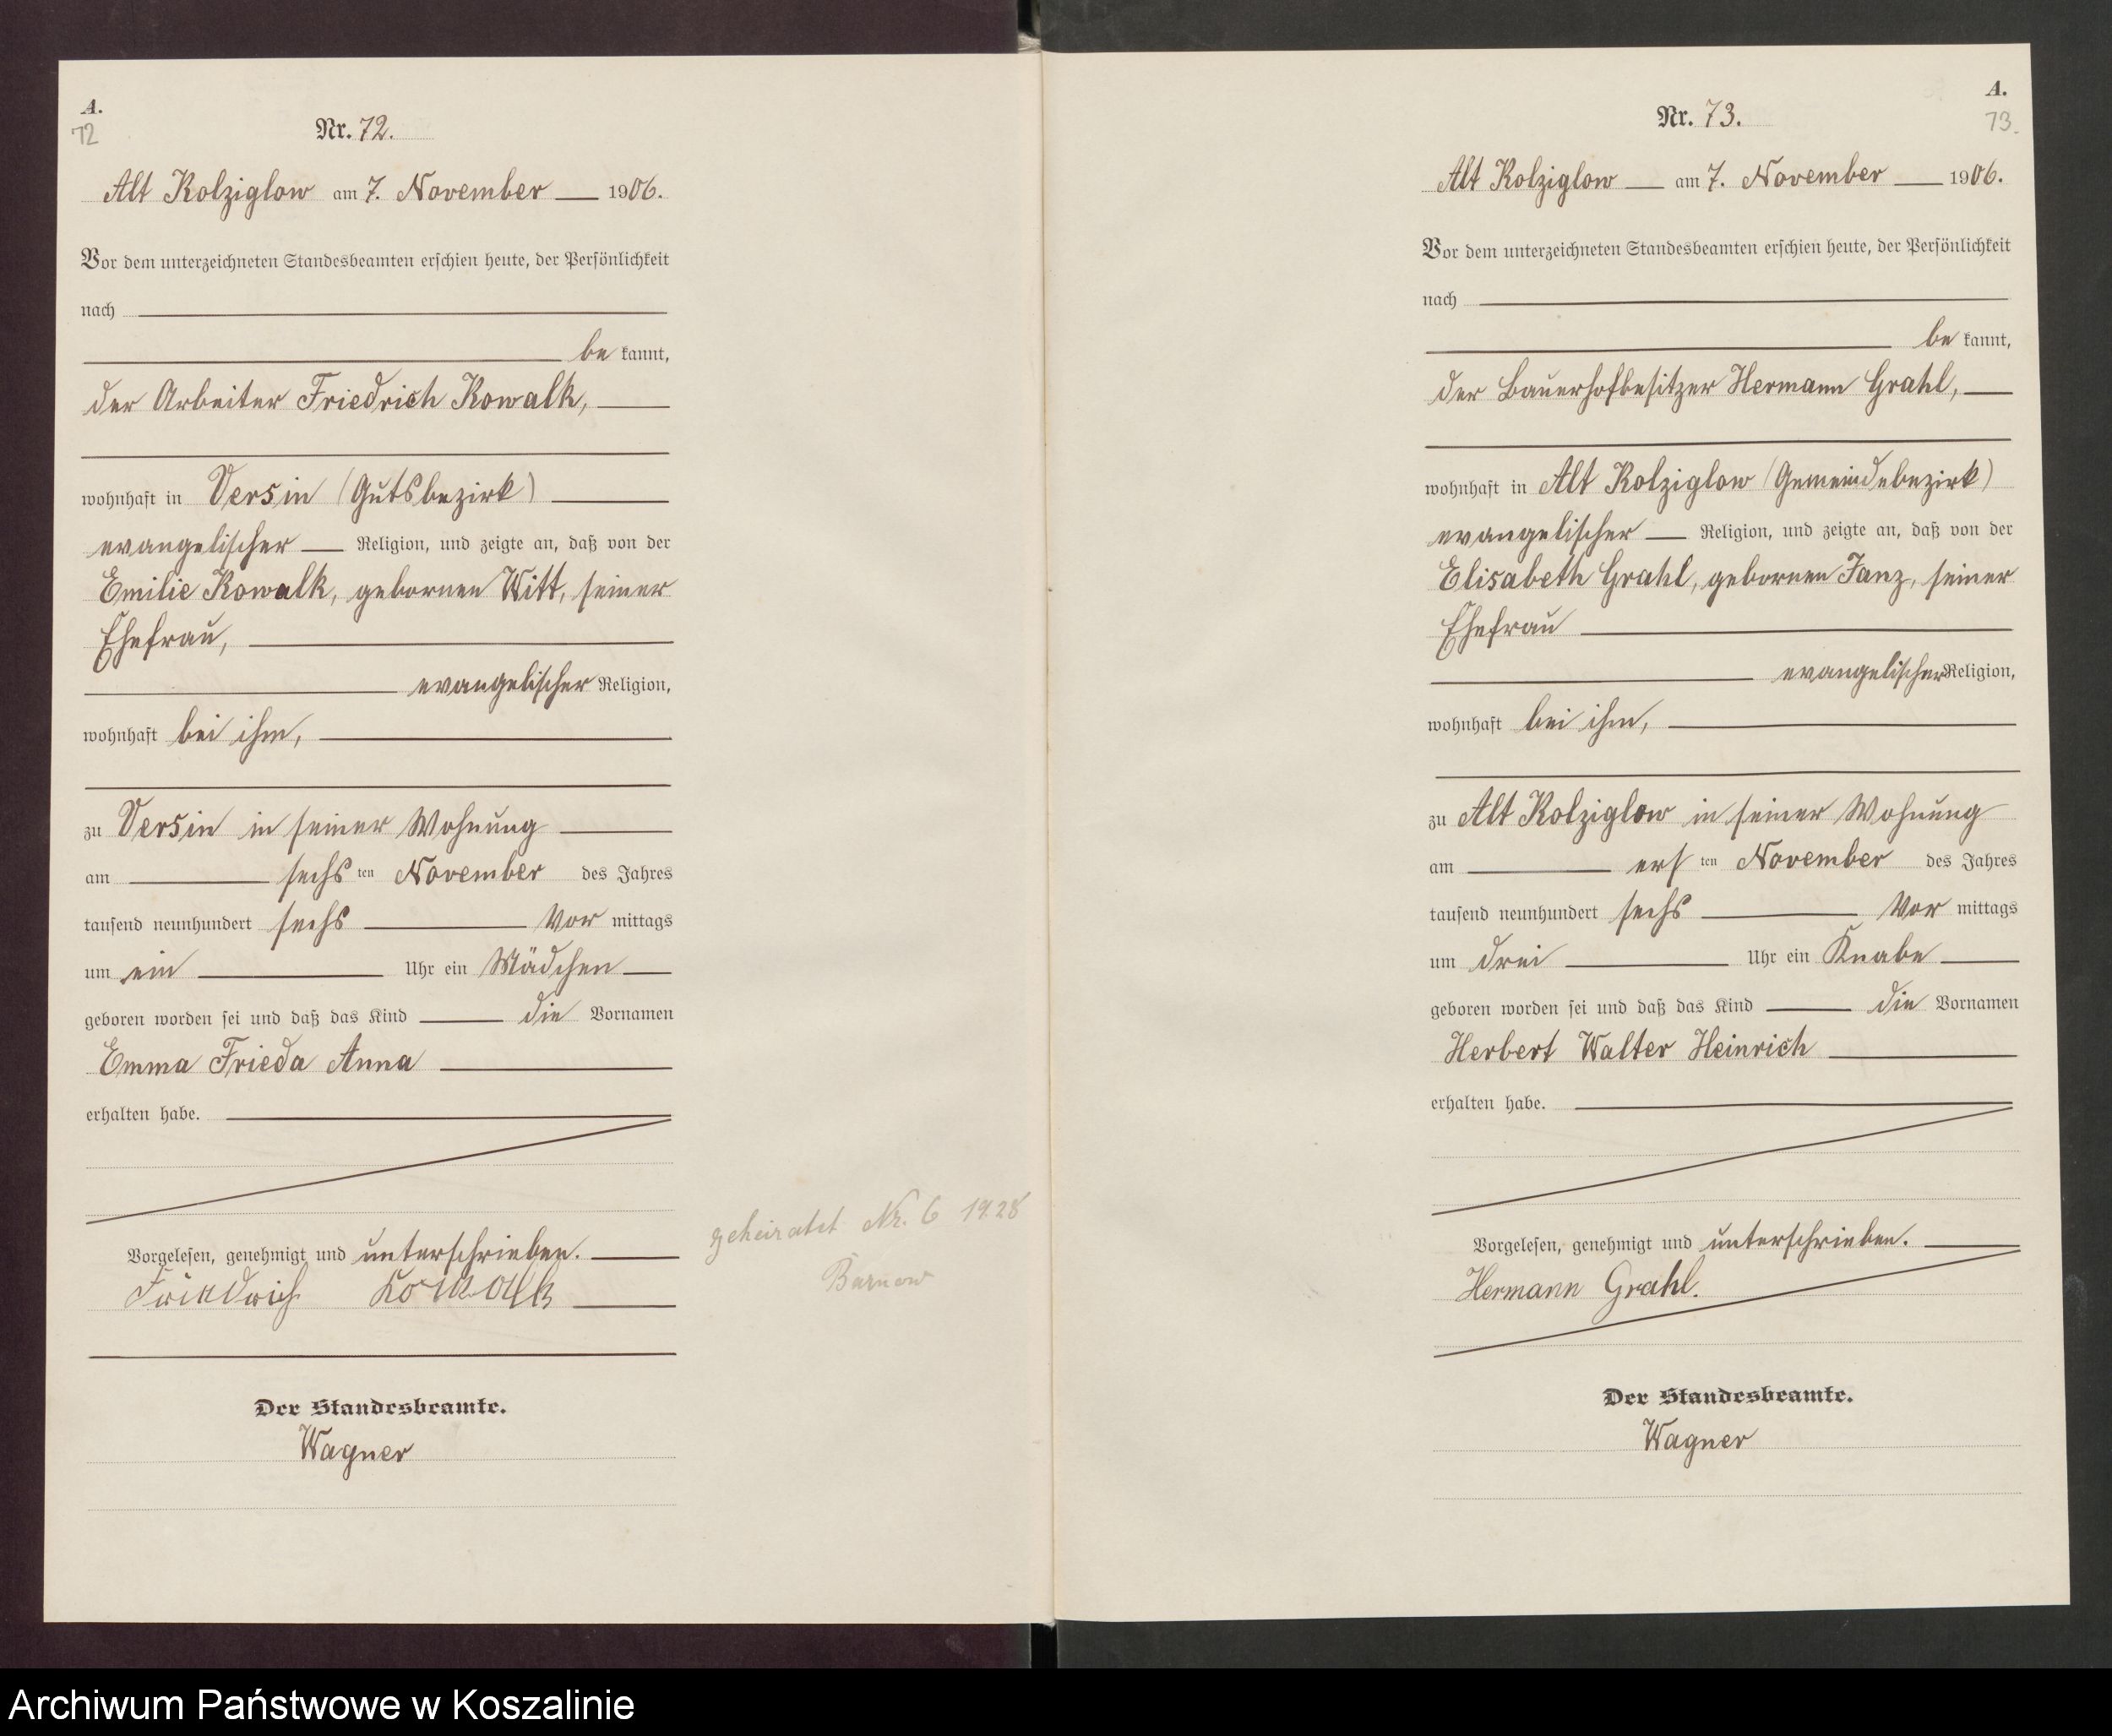 A.
72
Nr. 72.
Alt Kolziglow am 7. November 1906.
Vor dem unterzeichneten Standesbeamten erschien heute, der Persönlichkeit
nach
be kannt,
der Arbeiter Friedrich Kowalk,
wohnhaft in Versin (Gutsbezirk)
evangelischer Religion, und zeigte an, daß von der
Emilie Kowalk, gebornen Witt, seiner
Ehefrau,
evangelischer Religion,
wohnhaft bei ihm,
zu Versin in seiner Wohnung
am sechs ten November des Jahres
tausend neunhundert sechs Vor mittags
um ein Uhr ein Mädchen
geboren worden sei und daß das Kind die Vornamen
Emma Frieda Anna
erhalten habe.
Vorgelesen, genehmigt und unterschrieben.
Friedrich Kowalk
Der Standesbeamte.
Wagner
geheiratet Nr. 6 1928
Barnow
A.
73.
Nr. 73.
Alt Kolziglow am 7. November 1906.
Vor dem unterzeichneten Standesbeamten erschien heute, der Persönlichkeit
nach
be kannt,
der Bauerhofbesitzer Hermann Grahl,
wohnhaft in Alt Kolziglow (Gemeindebezirk)
evangelischer Religion, und zeigte an, daß von der
Elisabeth Grahl, gebornen Janz, seiner
Ehefrau
evangelischer Religion,
wohnhaft bei ihm,
zu Alt Kolziglow in seiner Wohnung
am ers ten November des Jahres
tausend neunhundert sechs Vor mittags
um drei Uhr ein Knabe
geboren worden sei und daß das Kind die Vornamen
Herbert Walter Heinrich
erhalten habe.
Vorgelesen, genehmigt und unterschrieben.
Hermann Grahl.
Der Standesbeamte.
Wagner
Archiwum Państwowe w Koszalinie